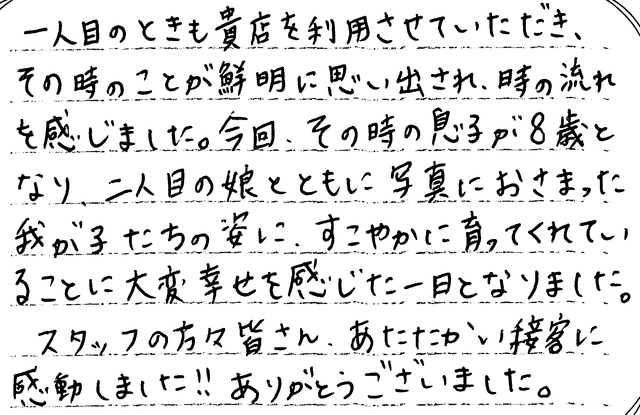 一人目のときも貴店を利用させていただき、
その時のことが鮮明に思い出され、時の流れ
を感じました。今回、その時の息子が8歳と
なり、二人目の娘とともに写真におさまった
我が子たちの姿に、すこやかに育ってくれてい
ることに大変幸せを感じた一日となりました。
スタッフの方々皆さん、あたたかい接客に
感動しました!!ありがとうございました。